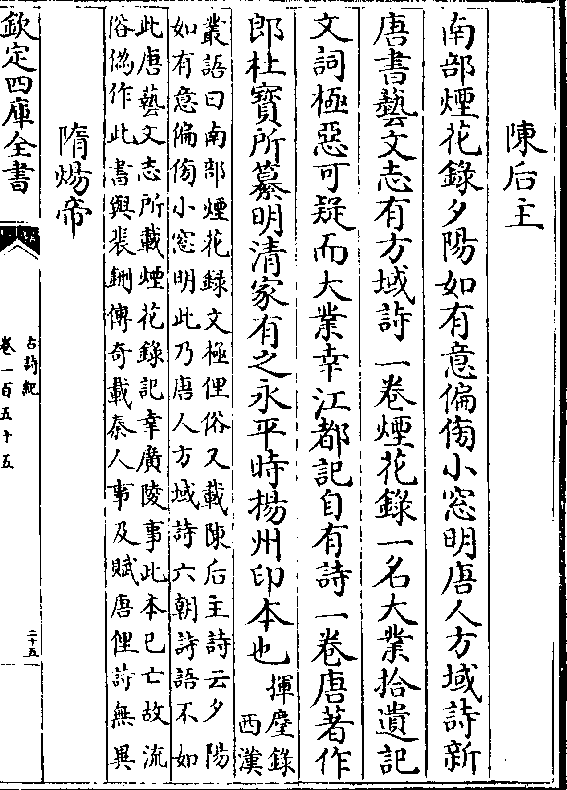 陳后主
南部煙花錄夕陽如有意偏傍小窓明唐人方域詩新
唐書藝文志有方域詩一卷煙花錄一名大業拾遺記
文詞極惡可疑而大業幸江都記自有詩一卷唐著作
郎杜寶所纂明清家有之永平時揚州印本也揮麈錄
西漢
叢語曰南部煙花録文極俚俗又載陳后主詩云夕陽
如有意偏傍小窓明此乃唐人方域詩六朝詩語不如
此唐藝文志所載煙花錄記幸廣陵事此本已亡故流
俗偽作此書與裴鉶傳奇載秦人事及賦唐俚詩無異
隋煬帝
欽定四庫全書
古詩紀
卷一百五十五
二十五